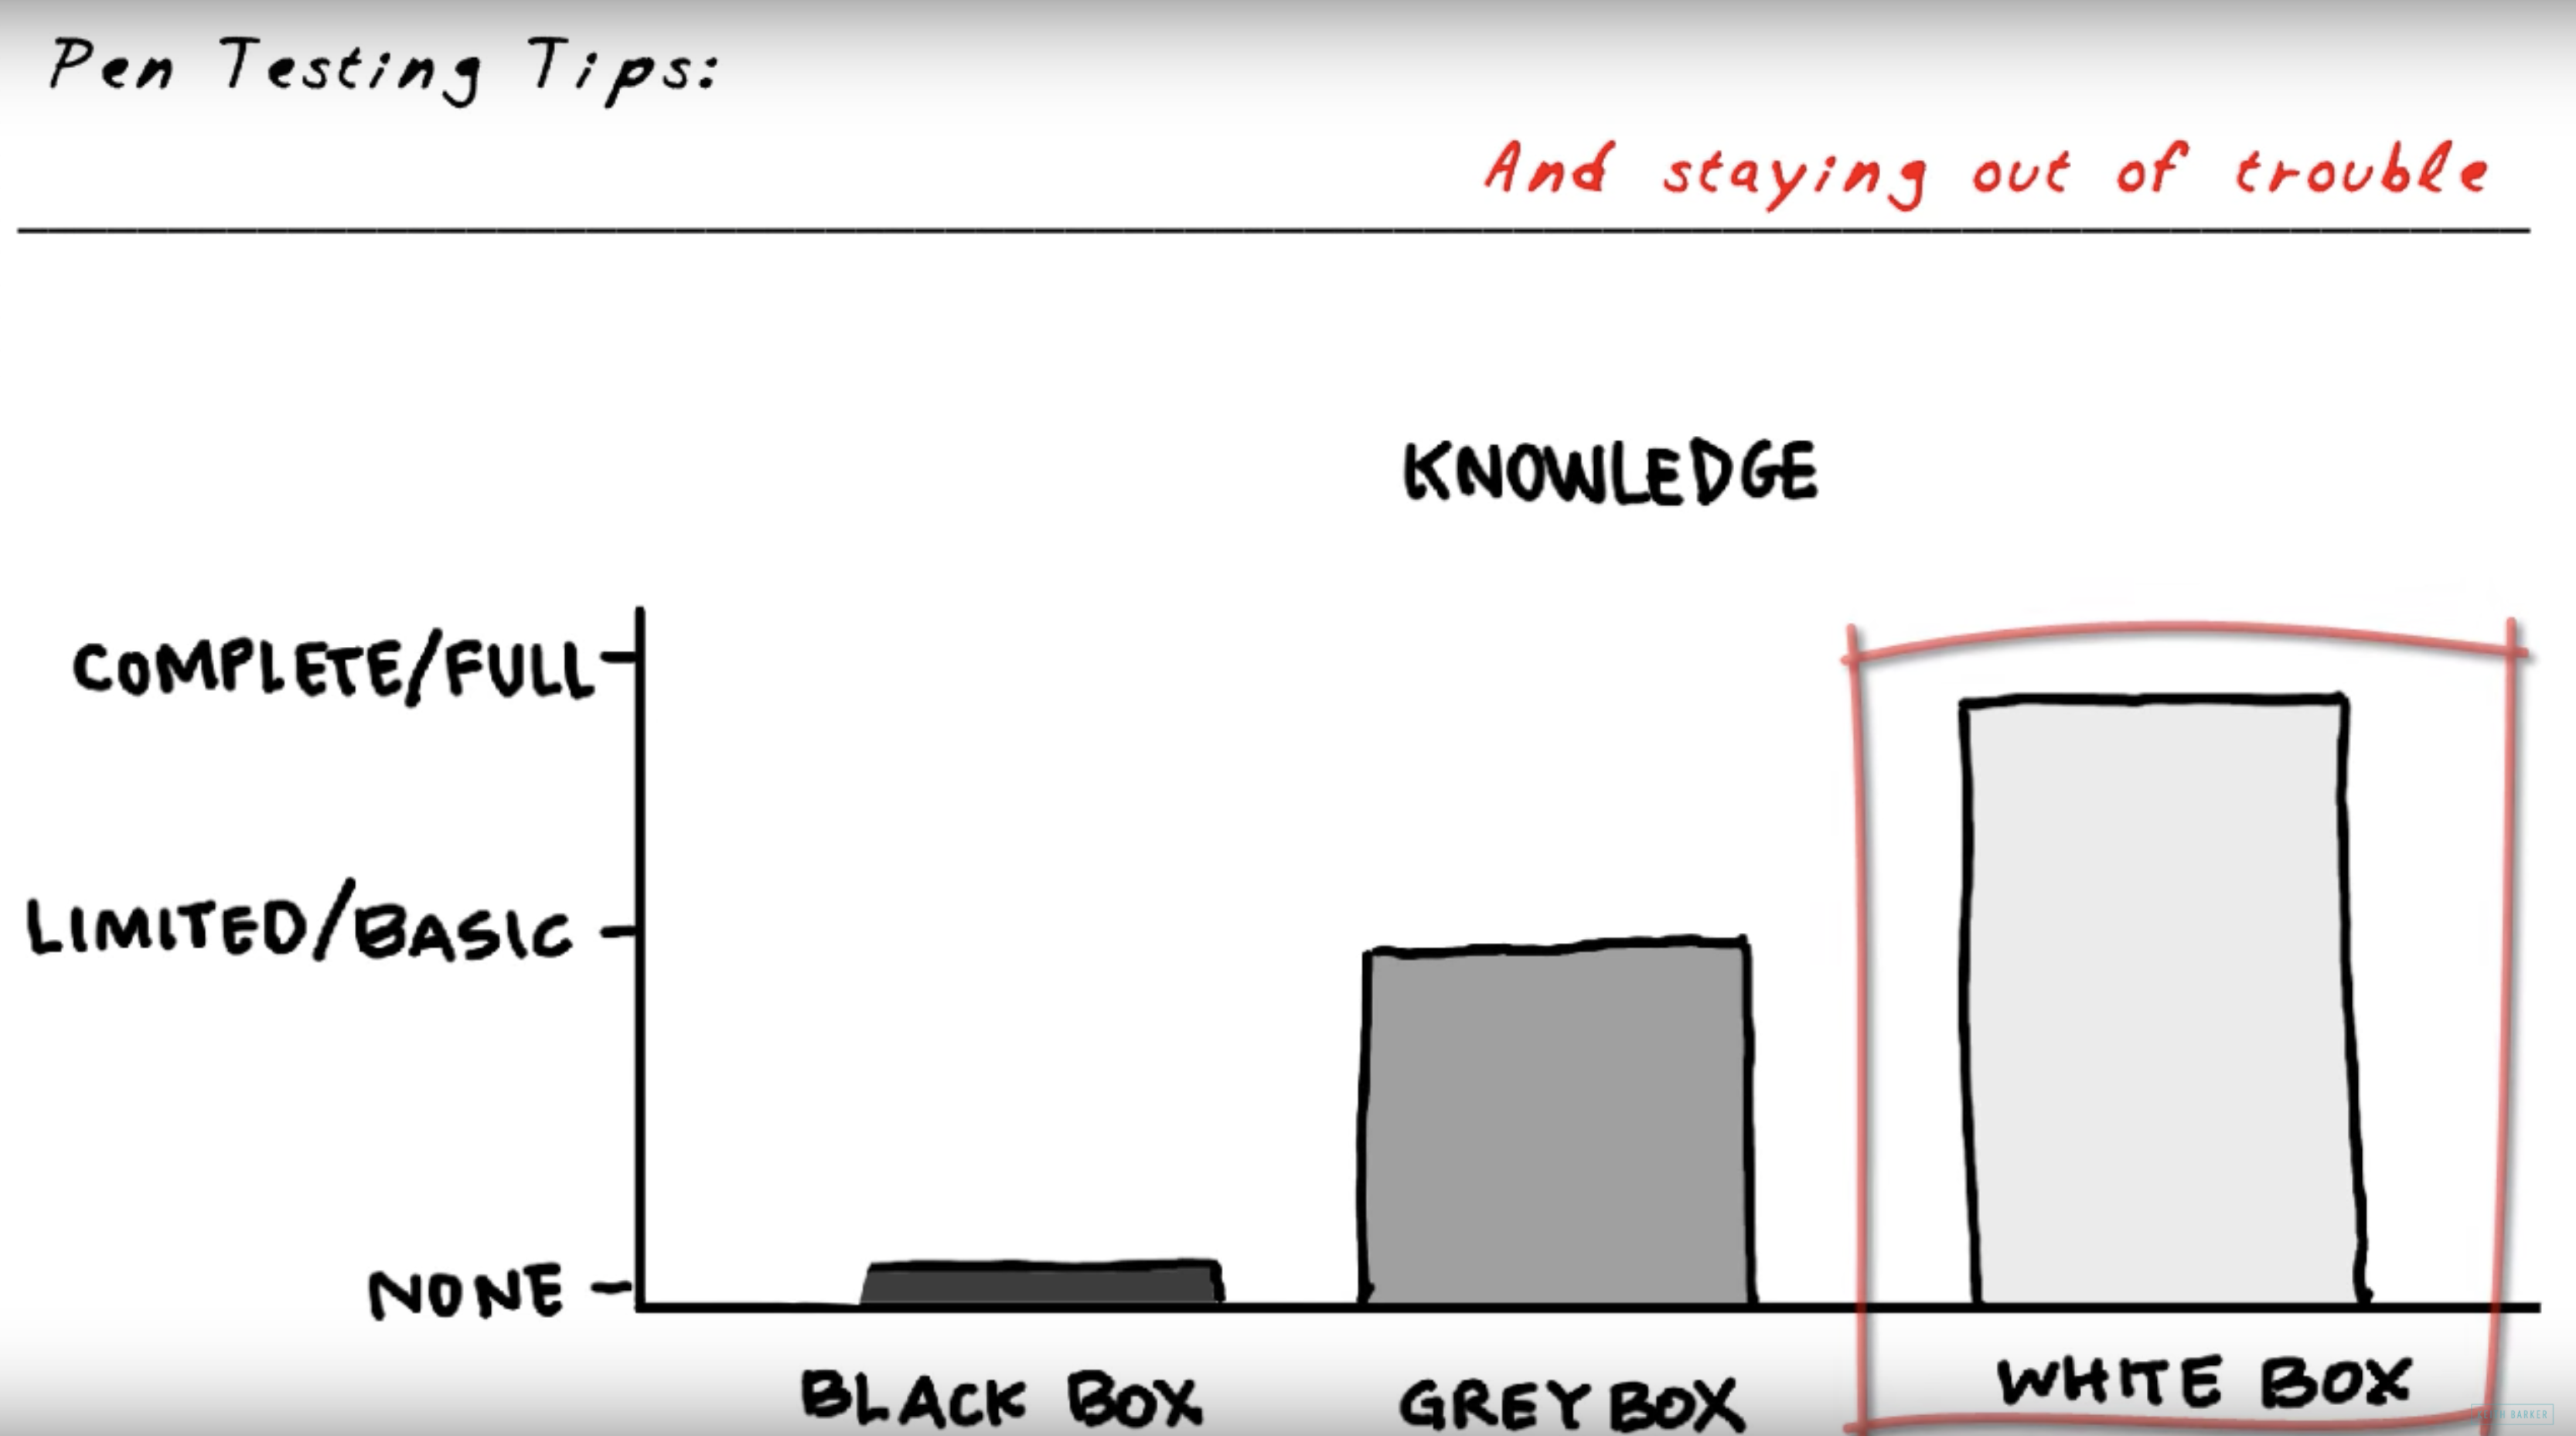 Pen Testing Tips:
And staying out of trouble
KNOWLEDGE
COMPLETE/FULL
LIMITED/BASIC
NONE
BLACK BOX
GREY BOX
WHITE BOX
BARKER